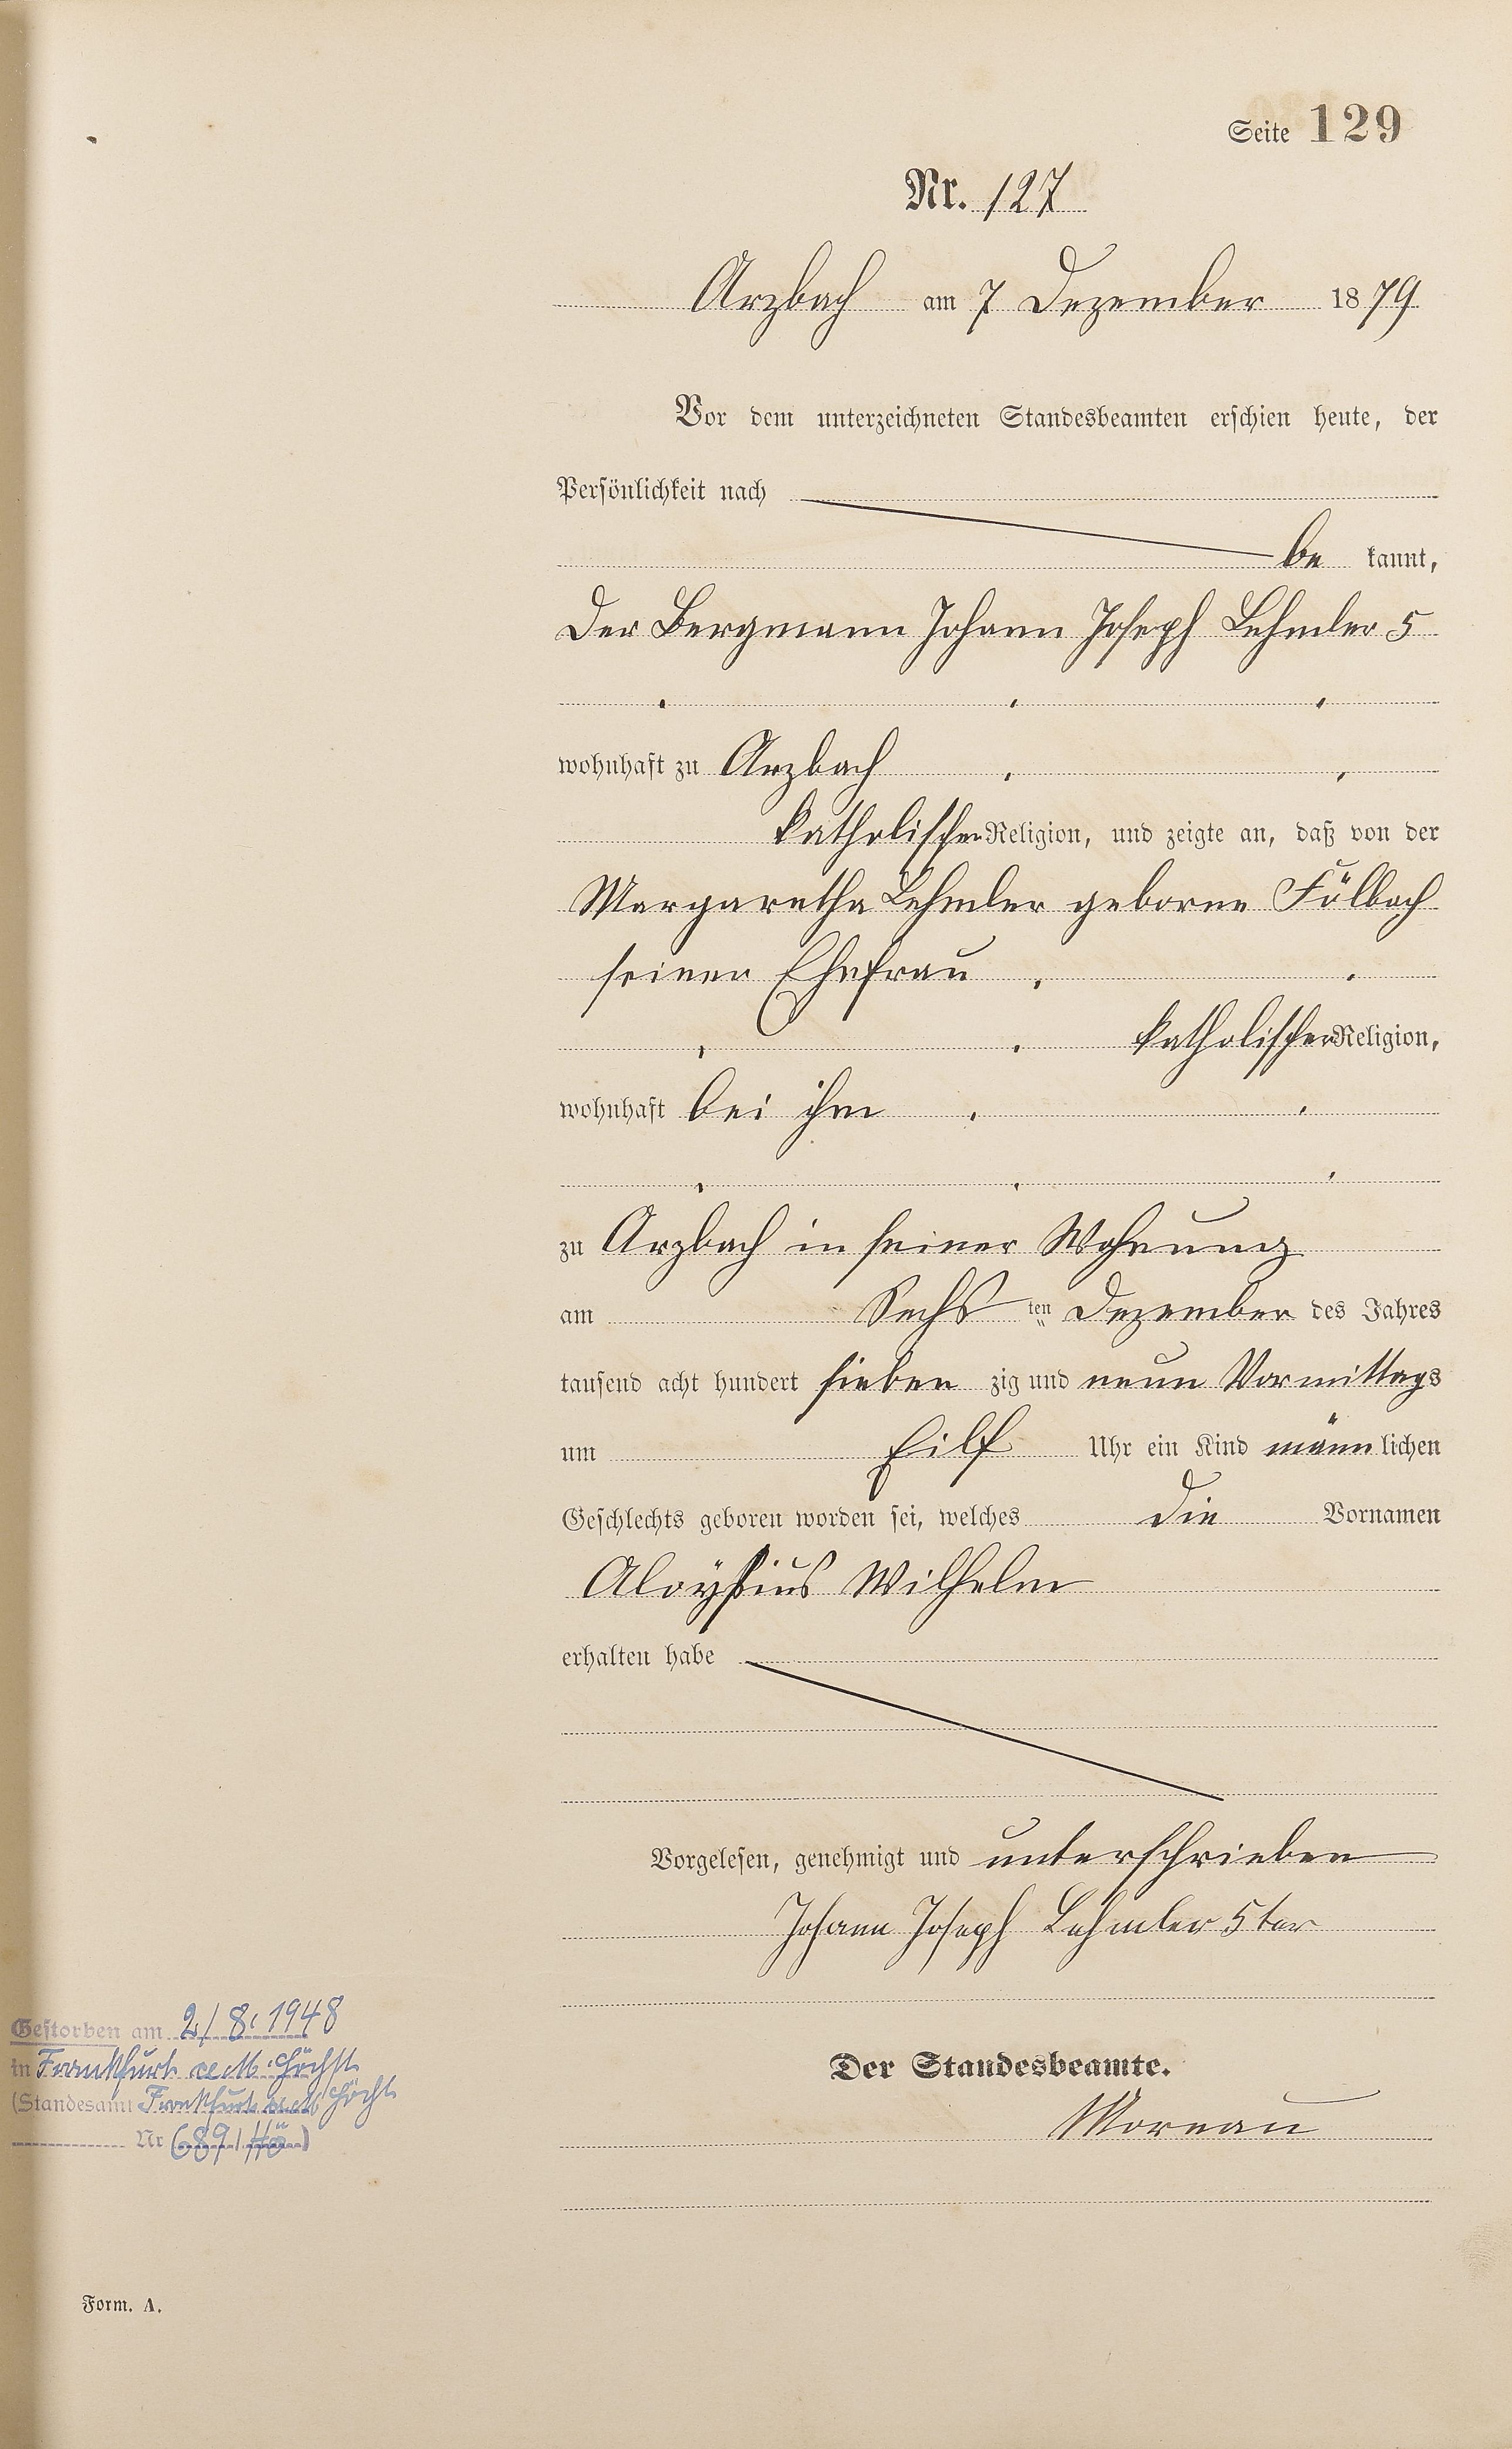 Seite 129
Nr. 127
Arzbach am 7 Dezember 1879
Vor dem unterzeichneten Standesbeamten erschien heute, der
Persönlichkeit nach
be kannt,
Der Bergmann Johann Joseph Lehmler 5
wohnhaft zu Arzbach
katholischer Religion, und zeigte an, daß von der
Margaretha Lehmler geborne Fölbach
seiner Ehefrau
katholischer Religion,
wohnhaft bei ihm
zu Arzbach in seiner Wohnung
am Sechs ten Dezember des Jahres
tausend acht hundert sieben zig und neun Vormittags
um Eilf Uhr ein Kind männ lichen
Geschlechts geboren worden sei, welches die Vornamen
Aloysius Wilhelm
erhalten habe
Vorgelesen, genehmigt und unterschrieben
Johann Joseph Lehmler 5ter
Gestorben am 2/8.1948
in Frankfurt a.M. Höchst
(Standesamt Frankfurt a.M Höchst
Nr (689/Hö)
Der Standesbeamte.
Moreau
Form. A.